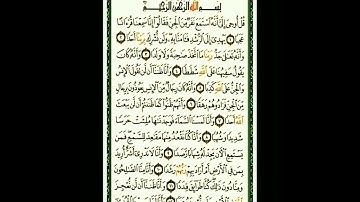 بِسْمِ اللَّهِ الرَّحْمَٰنِ الرَّحِيمِ
قُلْ أُوحِيَ إِلَيَّ أَنَّهُ اسْتَمَعَ نَفَرٌ مِّنَ الْجِنِّ فَقَالُوا إِنَّا سَمِعْنَا قُرْآنًا
عَجَبًا ١ يَهْدِي إِلَى الرُّشْدِ فَآمَنَّا بِهِ وَلَن نُّشْرِكَ بِرَبِّنَا أَحَدًا ٢
وَأَنَّهُ تَعَالَىٰ جَدُّ رَبِّنَا مَا اتَّخَذَ صَاحِبَةً وَلَا وَلَدًا ٣ وَأَنَّهُ كَانَ
يَقُولُ سَفِيهُنَا عَلَى اللَّهِ شَطَطًا ٤ وَأَنَّا ظَنَنَّا أَن لَّن تَقُولَ الْإِنسُ
وَالْجِنُّ عَلَى اللَّهِ كَذِبًا ٥ وَأَنَّهُ كَانَ رِجَالٌ مِّنَ الْإِنسِ يَعُوذُونَ بِرِجَالٍ
مِّنَ الْجِنِّ فَزَادُوهُمْ رَهَقًا ٦ وَأَنَّهُمْ ظَنُّوا كَمَا ظَنَنتُمْ أَن لَّن يَبْعَثَ
اللَّهُ أَحَدًا ٧ وَأَنَّا لَمَسْنَا السَّمَاءَ فَوَجَدْنَاهَا مُلِئَتْ حَرَسًا
شَدِيدًا وَشُهُبًا ٨ وَأَنَّا كُنَّا نَقْعُدُ مِنْهَا مَقَاعِدَ لِلسَّمْعِ فَمَن
يَسْتَمِعِ الْآنَ يَجِدْ لَهُ شِهَابًا رَّصَدًا ٩ وَأَنَّا لَا نَدْرِي أَشَرٌّ أُرِيدَ
بِمَن فِي الْأَرْضِ أَمْ أَرَادَ بِهِمْ رَبُّهُمْ رَشَدًا ١٠ وَأَنَّا مِنَّا الصَّالِحُونَ
وَمِنَّا دُونَ ذَٰلِكَ كُنَّا طَرَائِقَ قِدَدًا ١١ وَأَنَّا ظَنَنَّا أَن لَّن نُّعْجِزَ